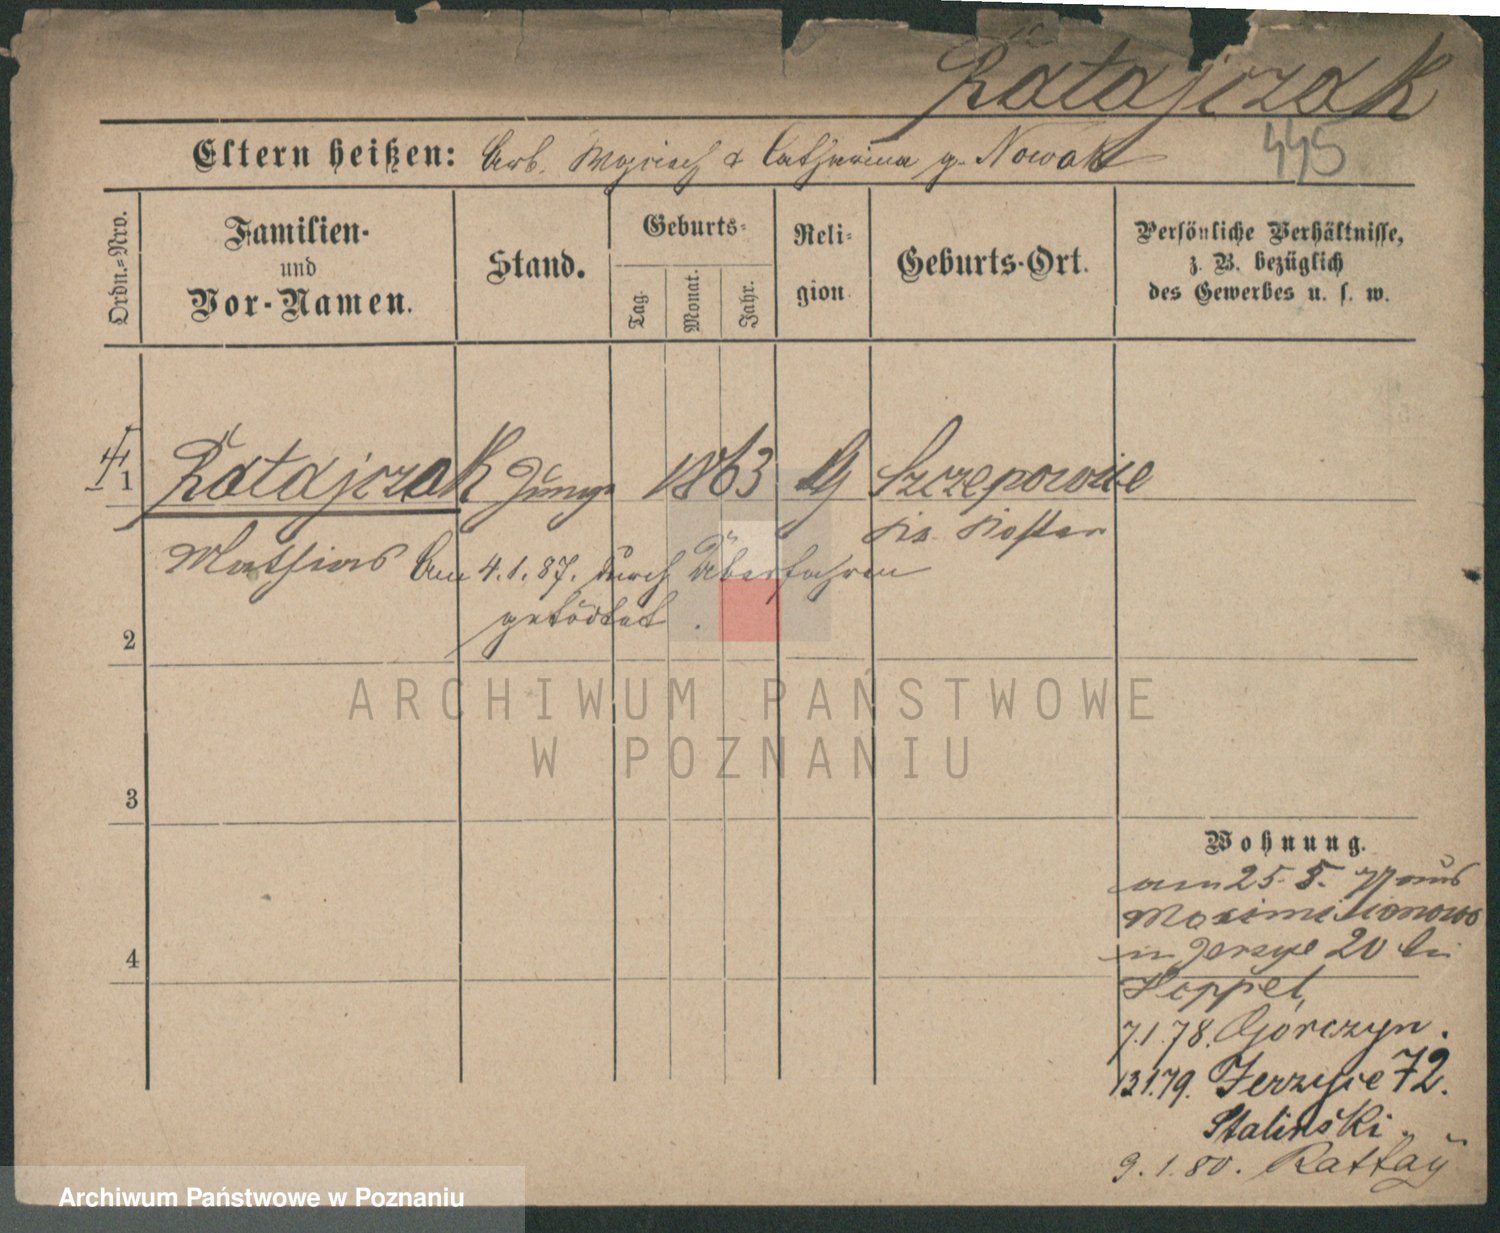 Ratajczak
445
Eltern heißen: Arb. Wojciech & Catharina g. Nowak
Ordn.-Nro.
Familien-
und
Vor-Namen.
Stand.
Geburts-
Tag.
Monat.
Jahr.
Reli-
gion
Geburts-Ort.
Persönliche Verhältnisse,
z. B. bezüglich
des Gewerbes u. s. w.
1 Ratajczak Junge 1863 Szczepowice
Mathias Ks. Kosten
Am 4.1.87. durch Überfahren
getödtet.
2
3
4
Wohnung.
am 25. 5. 77 aus
Maximilianowo
in Jerzyce 20 bei
Hoppel,
7.1.78. Górczyn.
13.1.79. Jerzyce 72.
Stalinski.
9.1.80. Rattay
ARCHIWUM PAŃSTWOWE
W POZNANIU
Archiwum Państwowe w Poznaniu